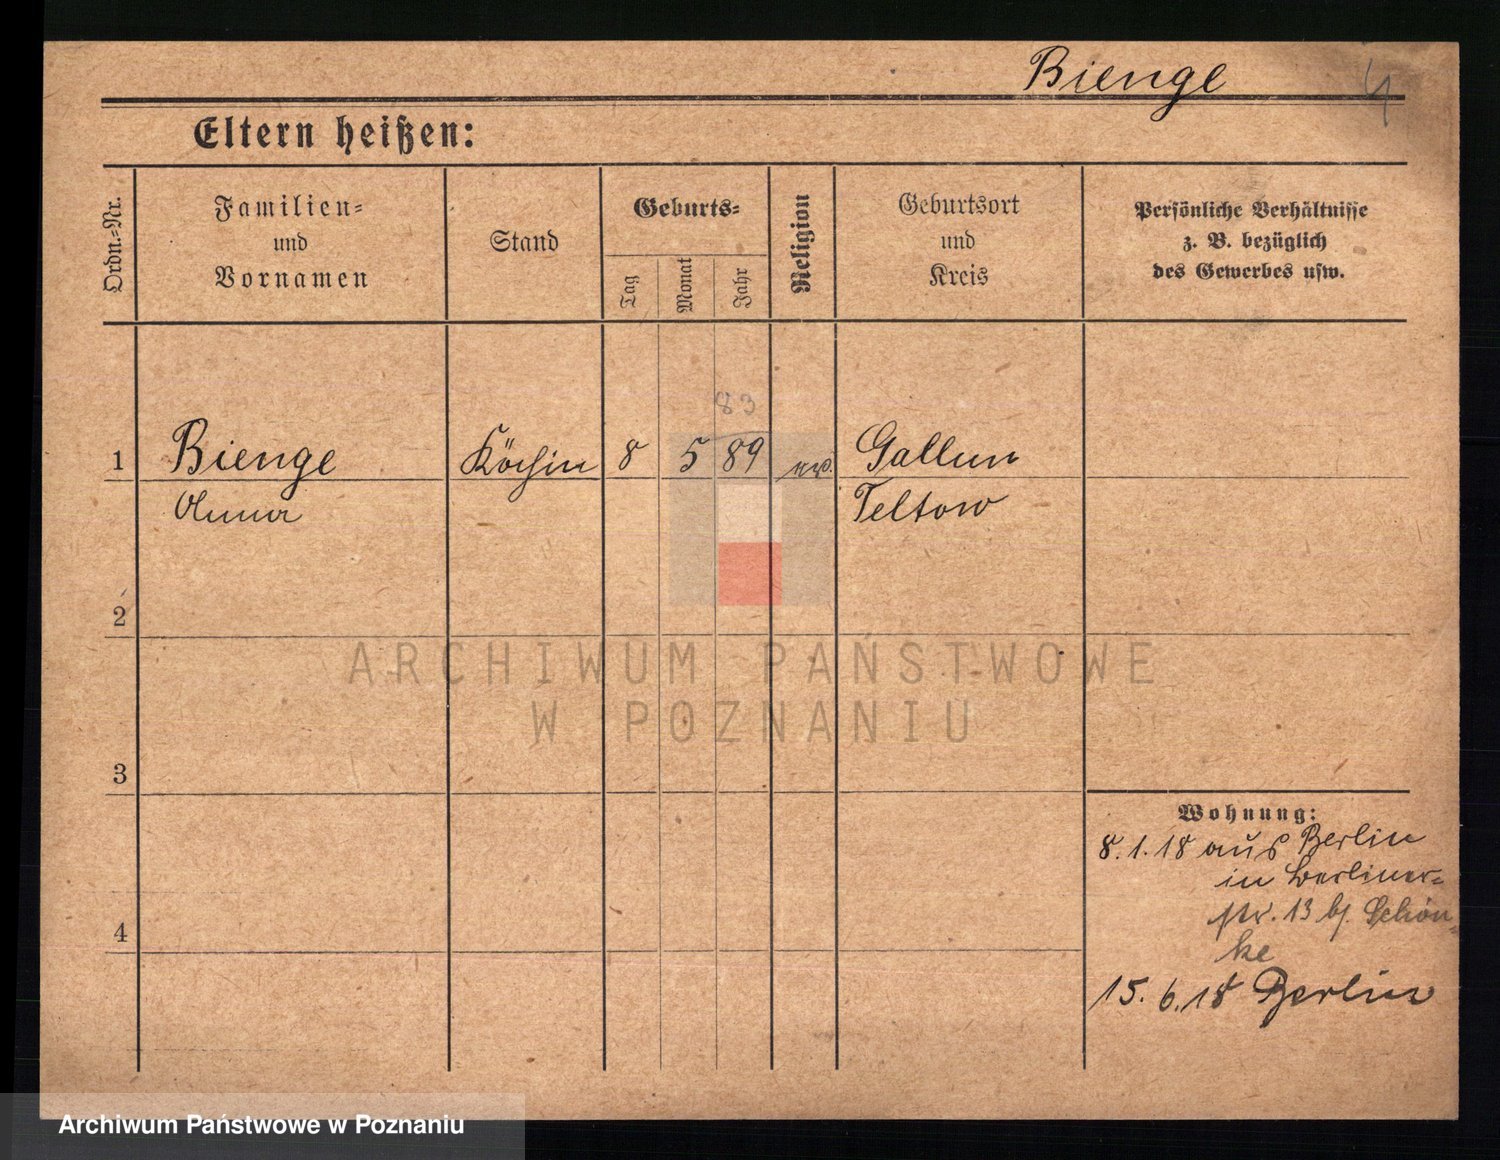 Bienge
4
Eltern heißen:
Ordn.=Nr.
Familien=
und
Vornamen
Stand
Geburts=
Tag
Monat
Jahr
Religion
Geburtsort
und
Kreis
Persönliche Verhältnisse
z. B. bezüglich
des Gewerbes usw.
83
1 Bienge Köchin 8 5 89 ev. Gallun
Anna Teltow
2
3
4
Wohnung:
8.1.18 aus Berlin
in Berliner=
str. 13 bj. Schön=
ke
15.6.18 Berlin
ARCHIWUM PAŃSTWOWE
W POZNANIU
Archiwum Państwowe w Poznaniu